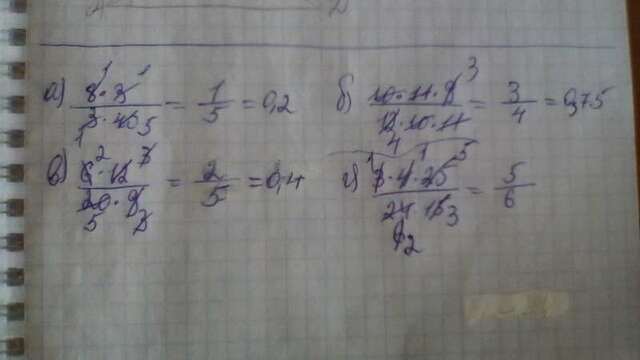 а) 8·3/3·40 = 1/5 = 0,2 б) 10·11·9/12·10·11 = 3/4 = 0,75
в) 6·12/20·9 = 2/5 = 0,4 г) 4·25/24·15 = 5/6